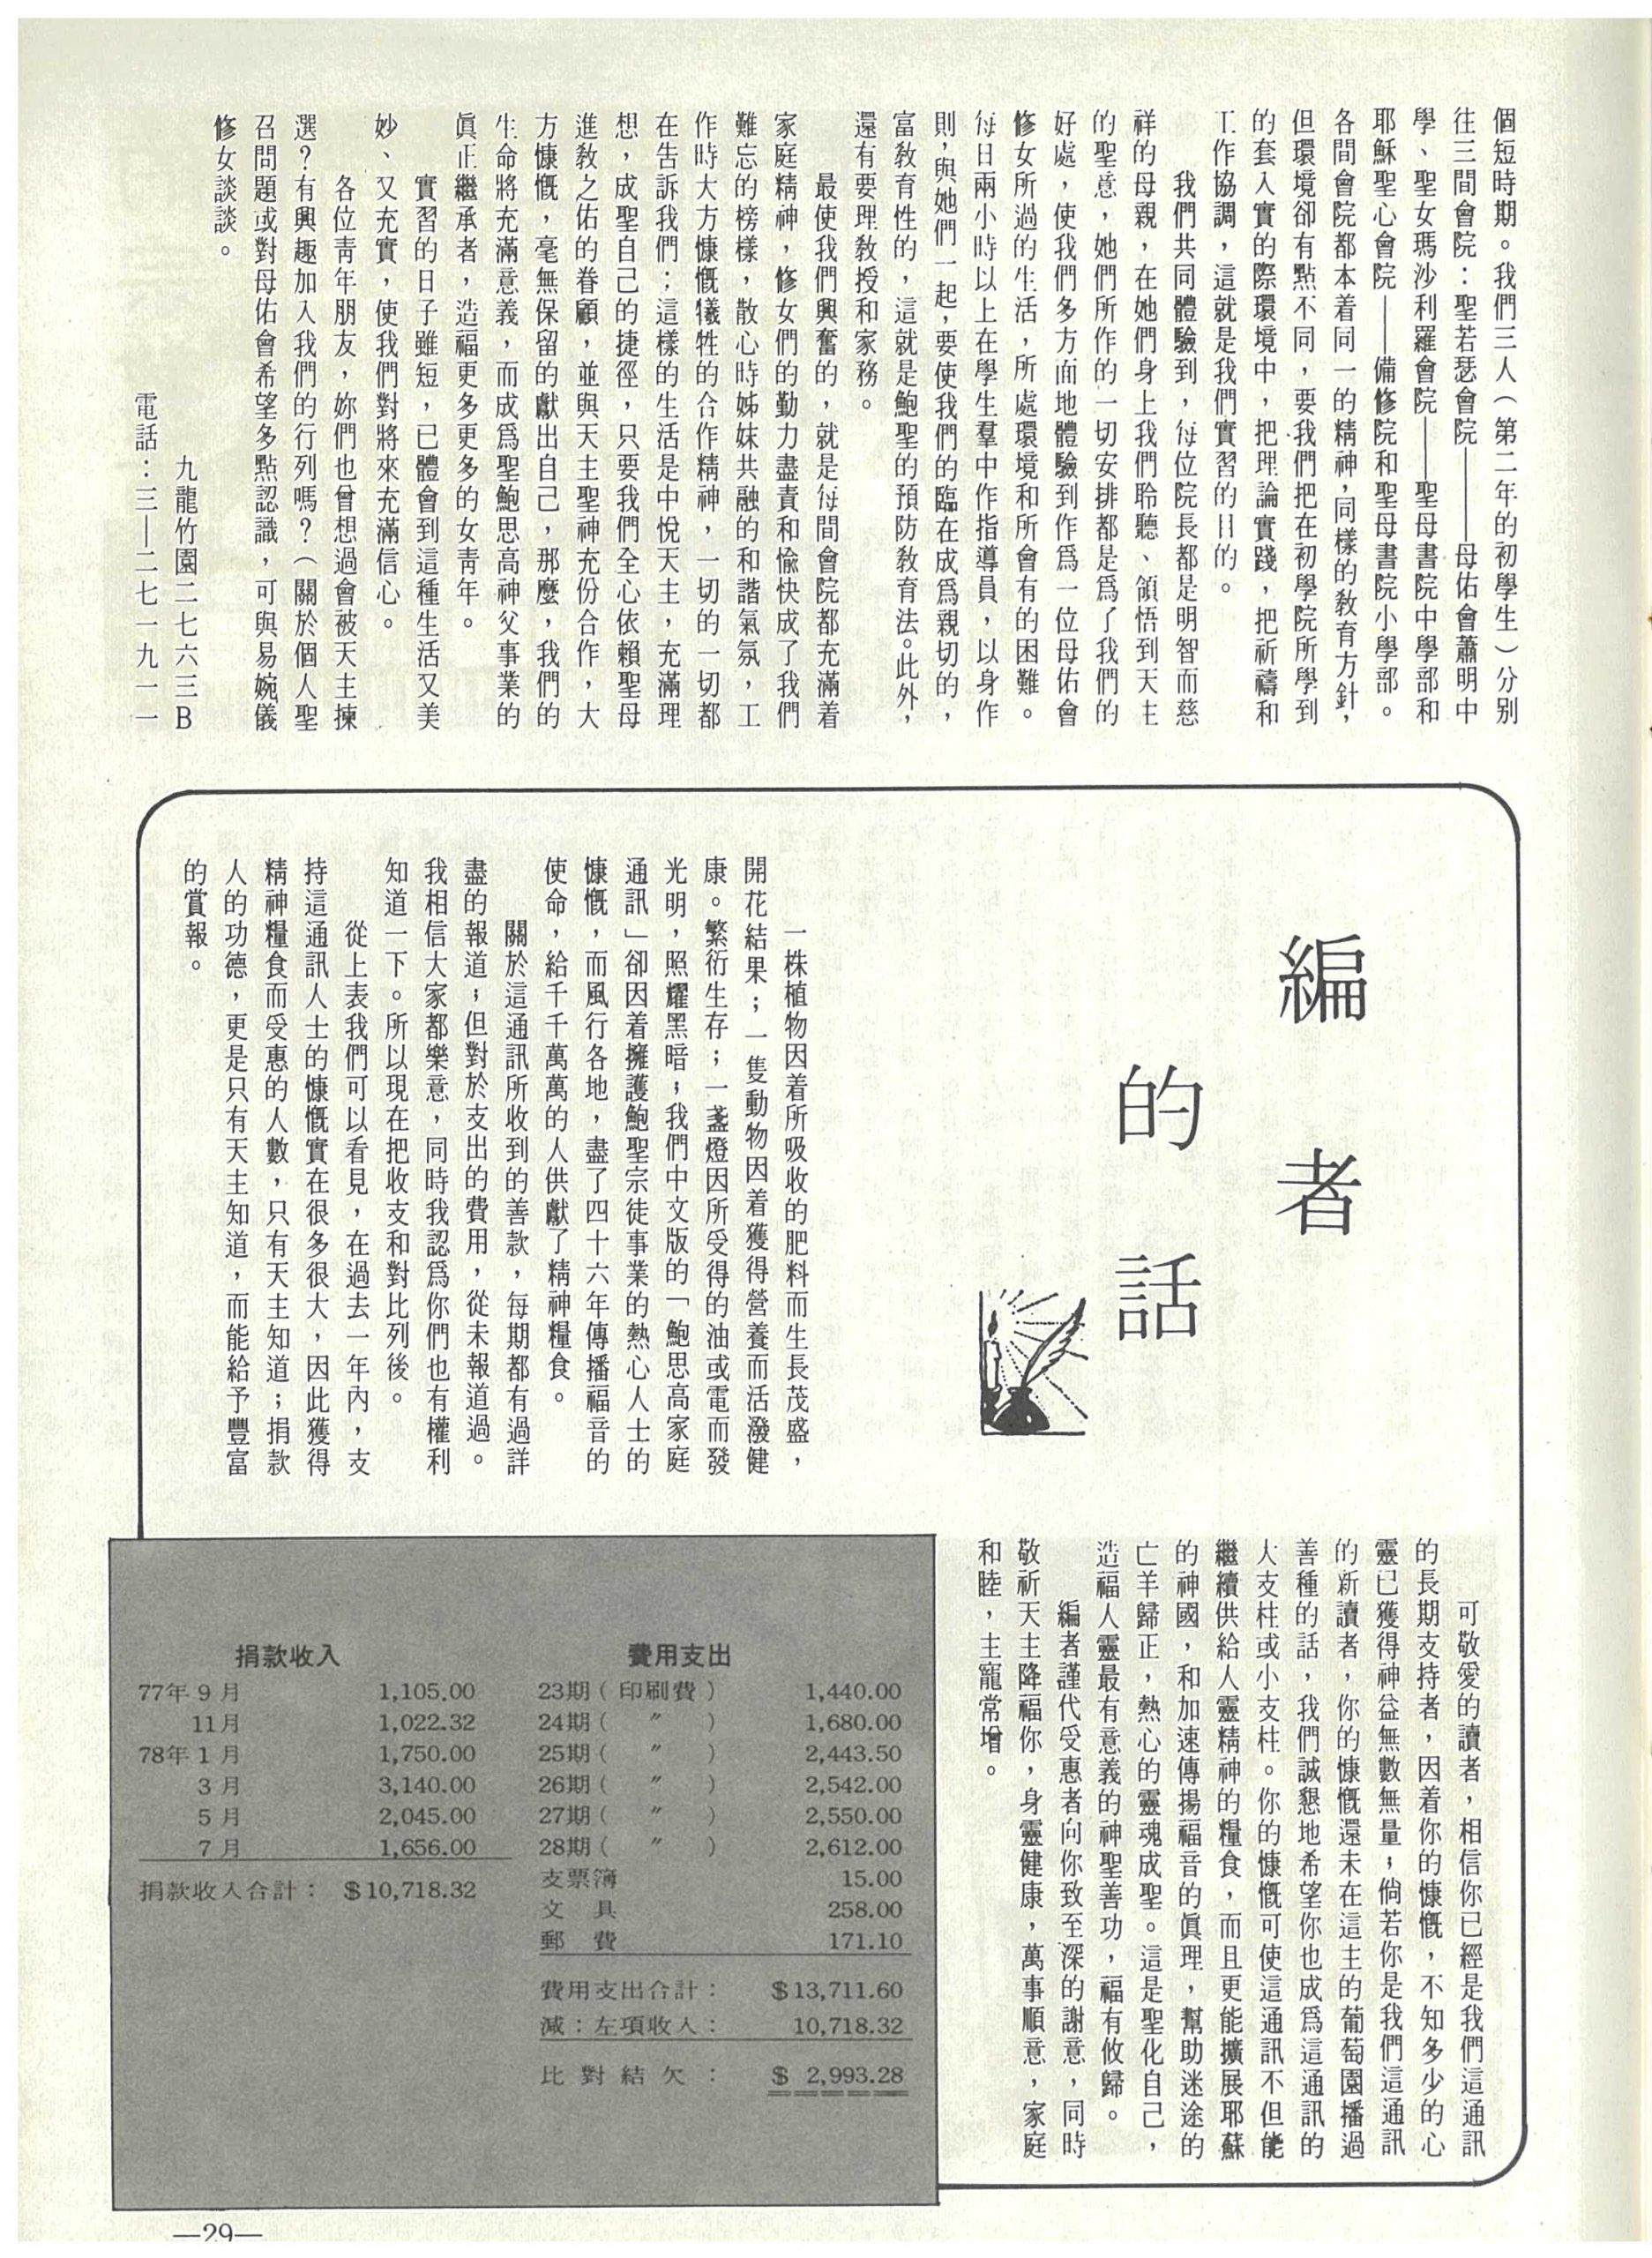 個短時期。我們三人（第二年的初學生）分別
往三間會院：聖若瑟會院——母佑會蕭明中
學、聖女瑪沙利羅會院——聖母書院中學部和
耶穌聖心會院——備修院和聖母書院小學部。
各間會院都本着同一的精神，同樣的教育方針，
但環境卻有點不同，要我們把在初學院所學到
的套入實的際環境中，把理論實踐，把祈禱和
工作協調，這就是我們實習的目的。
我們共同體驗到，每位院長都是明智而慈
祥的母親，在她們身上我們聆聽、領悟到天主
的聖意，她們所作的一切安排都是爲了我們的
好處，使我們多方面地體驗到作爲一位母佑會
修女所過的生活，所處環境和所會有的困難。
每日兩小時以上在學生羣中作指導員，以身作
則，與她們一起，要使我們的臨在成爲親切的，
富教育性的，這就是鮑聖的預防教育法。此外，
還有要理教授和家務。
最使我們興奮的，就是每間會院都充滿着
家庭精神，修女們的勤力盡責和愉快成了我們
難忘的榜樣，散心時姊妹共融的和諧氣氛，工
作時大方慷慨犧牲的合作精神，一切的一切都
在告訴我們；這樣的生活是中悅天主，充滿理
想，成聖自己的捷徑，只要我們全心依賴聖母
進教之佑的眷顧，並與天主聖神充份合作，大
方慷慨，毫無保留的獻出自己，那麼，我們的
生命將充滿意義，而成爲聖鮑思高神父事業的
眞正繼承者，造福更多更多的女靑年。
實習的日子雖短，已體會到這種生活又美
妙、又充實，使我們對將來充滿信心。
各位靑年朋友，妳們也曾想過會被天主揀
選？有興趣加入我們的行列嗎？（關於個人聖
召問題或對母佑會希望多點認識，可與易婉儀
修女談談。
九龍竹園二七六三B
電話：三—二七一九一一
編者
的話
一株植物因着所吸收的肥料而生長茂盛，
開花結果；一隻動物因着獲得營養而活潑健
康。繁衍生存；一盞燈因所受得的油或電而發
光明，照耀黑暗；我們中文版的「鮑思高家庭
通訊」卻因着擁護鮑聖宗徒事業的熱心人士的
慷慨，而風行各地，盡了四十六年傳播福音的
使命，給千千萬萬的人供獻了精神糧食。
關於這通訊所收到的善款，每期都有過詳
盡的報道；但對於支出的費用，從未報道過。
我相信大家都樂意，同時我認爲你們也有權利
知道一下。所以現在把收支和對比列後。
從上表我們可以看見，在過去一年內，支
持這通訊人士的慷慨實在很多很大，因此獲得
精神糧食而受惠的人數，只有天主知道；捐款
人的功德，更是只有天主知道，而能給予豐富
的賞報。
可敬愛的讀者，相信你已經是我們這通訊
的長期支持者，因着你的慷慨，不知多少的心
靈已獲得神益無數無量；倘若你是我們這通訊
的新讀者，你的慷慨還未在這主的葡萄園播過
善種的話，我們誠懇地希望你也成爲這通訊的
大支柱或小支柱。你的慷慨可使這通訊不但能
繼續供給人靈精神的糧食，而且更能擴展耶蘇
的神國，和加速傳揚福音的眞理，幫助迷途的
亡羊歸正，熱心的靈魂成聖。這是聖化自己，
造福人靈最有意義的神聖善功，福有攸歸。
編者謹代受惠者向你致至深的謝意，同時
敬祈天主降福你，身靈健康，萬事順意，家庭
和睦，主寵常增。
捐款收入
77年9月 1,105.00
11月 1,022.32
78年1月 1,750.00
3月 3,140.00
5月 2,045.00
7月 1,656.00
捐款收入合計： $10,718.32
費用支出
23期（印刷費） 1,440.00
24期（ 〃 ） 1,680.00
25期（ 〃 ） 2,443.50
26期（ 〃 ） 2,542.00
27期（ 〃 ） 2,550.00
28期（ 〃 ） 2,612.00
支票簿 15.00
文具 258.00
郵費 171.10
費用支出合計： $13,711.60
減：左項收入： 10,718.32
比對結欠： $ 2,993.28
—29—